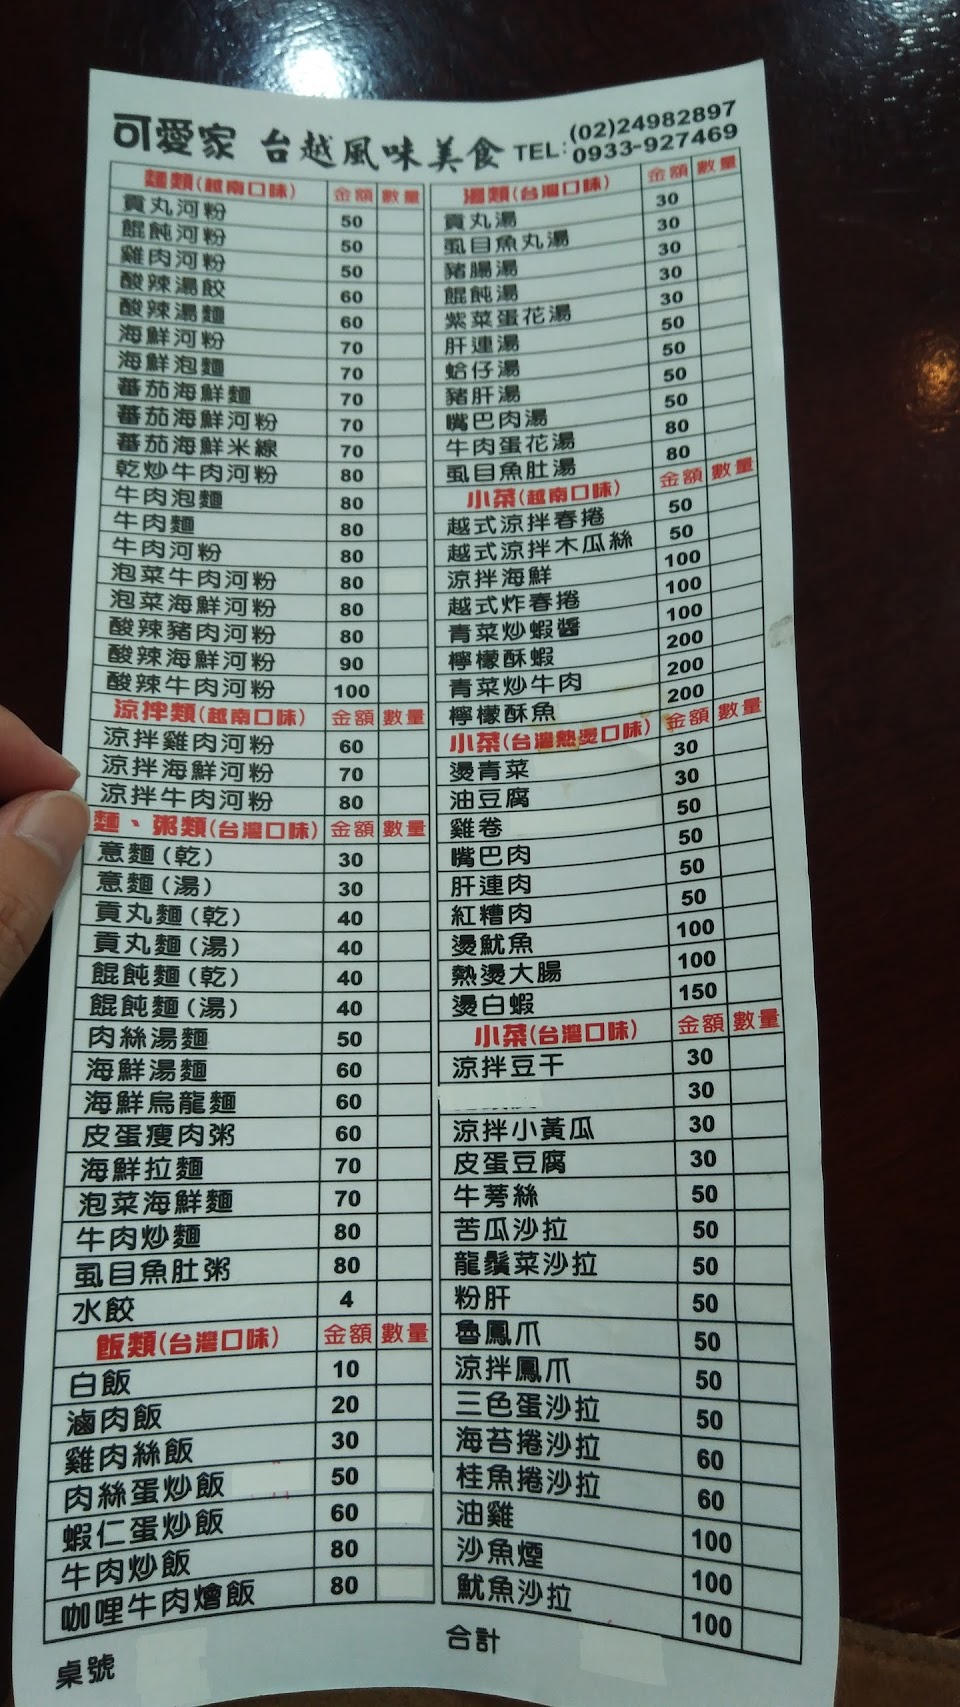 可愛家 台越風味美食 TEL: (02)24982897
0933-927469
麵類(越南口味) 金額 數量
貢丸河粉 50
餛飩河粉 50
雞肉河粉 50
酸辣湯餃 60
酸辣湯麵 60
海鮮河粉 70
海鮮泡麵 70
蕃茄海鮮麵 70
蕃茄海鮮河粉 70
蕃茄海鮮米線 70
乾炒牛肉河粉 80
牛肉泡麵 80
牛肉麵 80
牛肉河粉 80
泡菜牛肉河粉 80
泡菜海鮮河粉 80
酸辣豬肉河粉 80
酸辣海鮮河粉 90
酸辣牛肉河粉 100
涼拌類(越南口味) 金額 數量
涼拌雞肉河粉 60
涼拌海鮮河粉 70
涼拌牛肉河粉 80
麵、粥類(台灣口味) 金額 數量
意麵(乾) 30
意麵(湯) 30
貢丸麵(乾) 40
貢丸麵(湯) 40
餛飩麵(乾) 40
餛飩麵(湯) 40
肉絲湯麵 50
海鮮湯麵 60
海鮮烏龍麵 60
皮蛋瘦肉粥 60
海鮮拉麵 70
泡菜海鮮麵 70
牛肉炒麵 80
虱目魚肚粥 80
水餃 4
飯類(台灣口味) 金額 數量
白飯 10
滷肉飯 20
雞肉絲飯 30
肉絲蛋炒飯 50
蝦仁蛋炒飯 60
牛肉炒飯 80
咖哩牛肉燴飯 80
桌號
湯類(台灣口味) 金額 數量
貢丸湯 30
虱目魚丸湯 30
豬腸湯 30
餛飩湯 30
紫菜蛋花湯 30
肝連湯 50
蛤仔湯 50
豬肝湯 50
嘴巴肉湯 50
牛肉蛋花湯 80
虱目魚肚湯 80
小菜(越南口味) 金額 數量
越式涼拌春捲 50
越式涼拌木瓜絲 50
涼拌海鮮 100
越式炸春捲 100
青菜炒蝦醬 100
檸檬酥蝦 200
青菜炒牛肉 200
檸檬酥魚 200
小菜(台灣熱燙口味) 金額 數量
燙青菜 30
油豆腐 30
雞卷 50
嘴巴肉 50
肝連肉 50
紅糟肉 50
燙魷魚 100
熱燙大腸 100
燙白蝦 150
小菜(台灣口味) 金額 數量
涼拌豆干 30
30
涼拌小黃瓜 30
皮蛋豆腐 30
牛蒡絲 50
苦瓜沙拉 50
龍鬚菜沙拉 50
粉肝 50
魯鳳爪 50
涼拌鳳爪 50
三色蛋沙拉 50
海苔捲沙拉 60
桂魚捲沙拉 60
油雞 100
沙魚煙 100
魷魚沙拉 100
合計